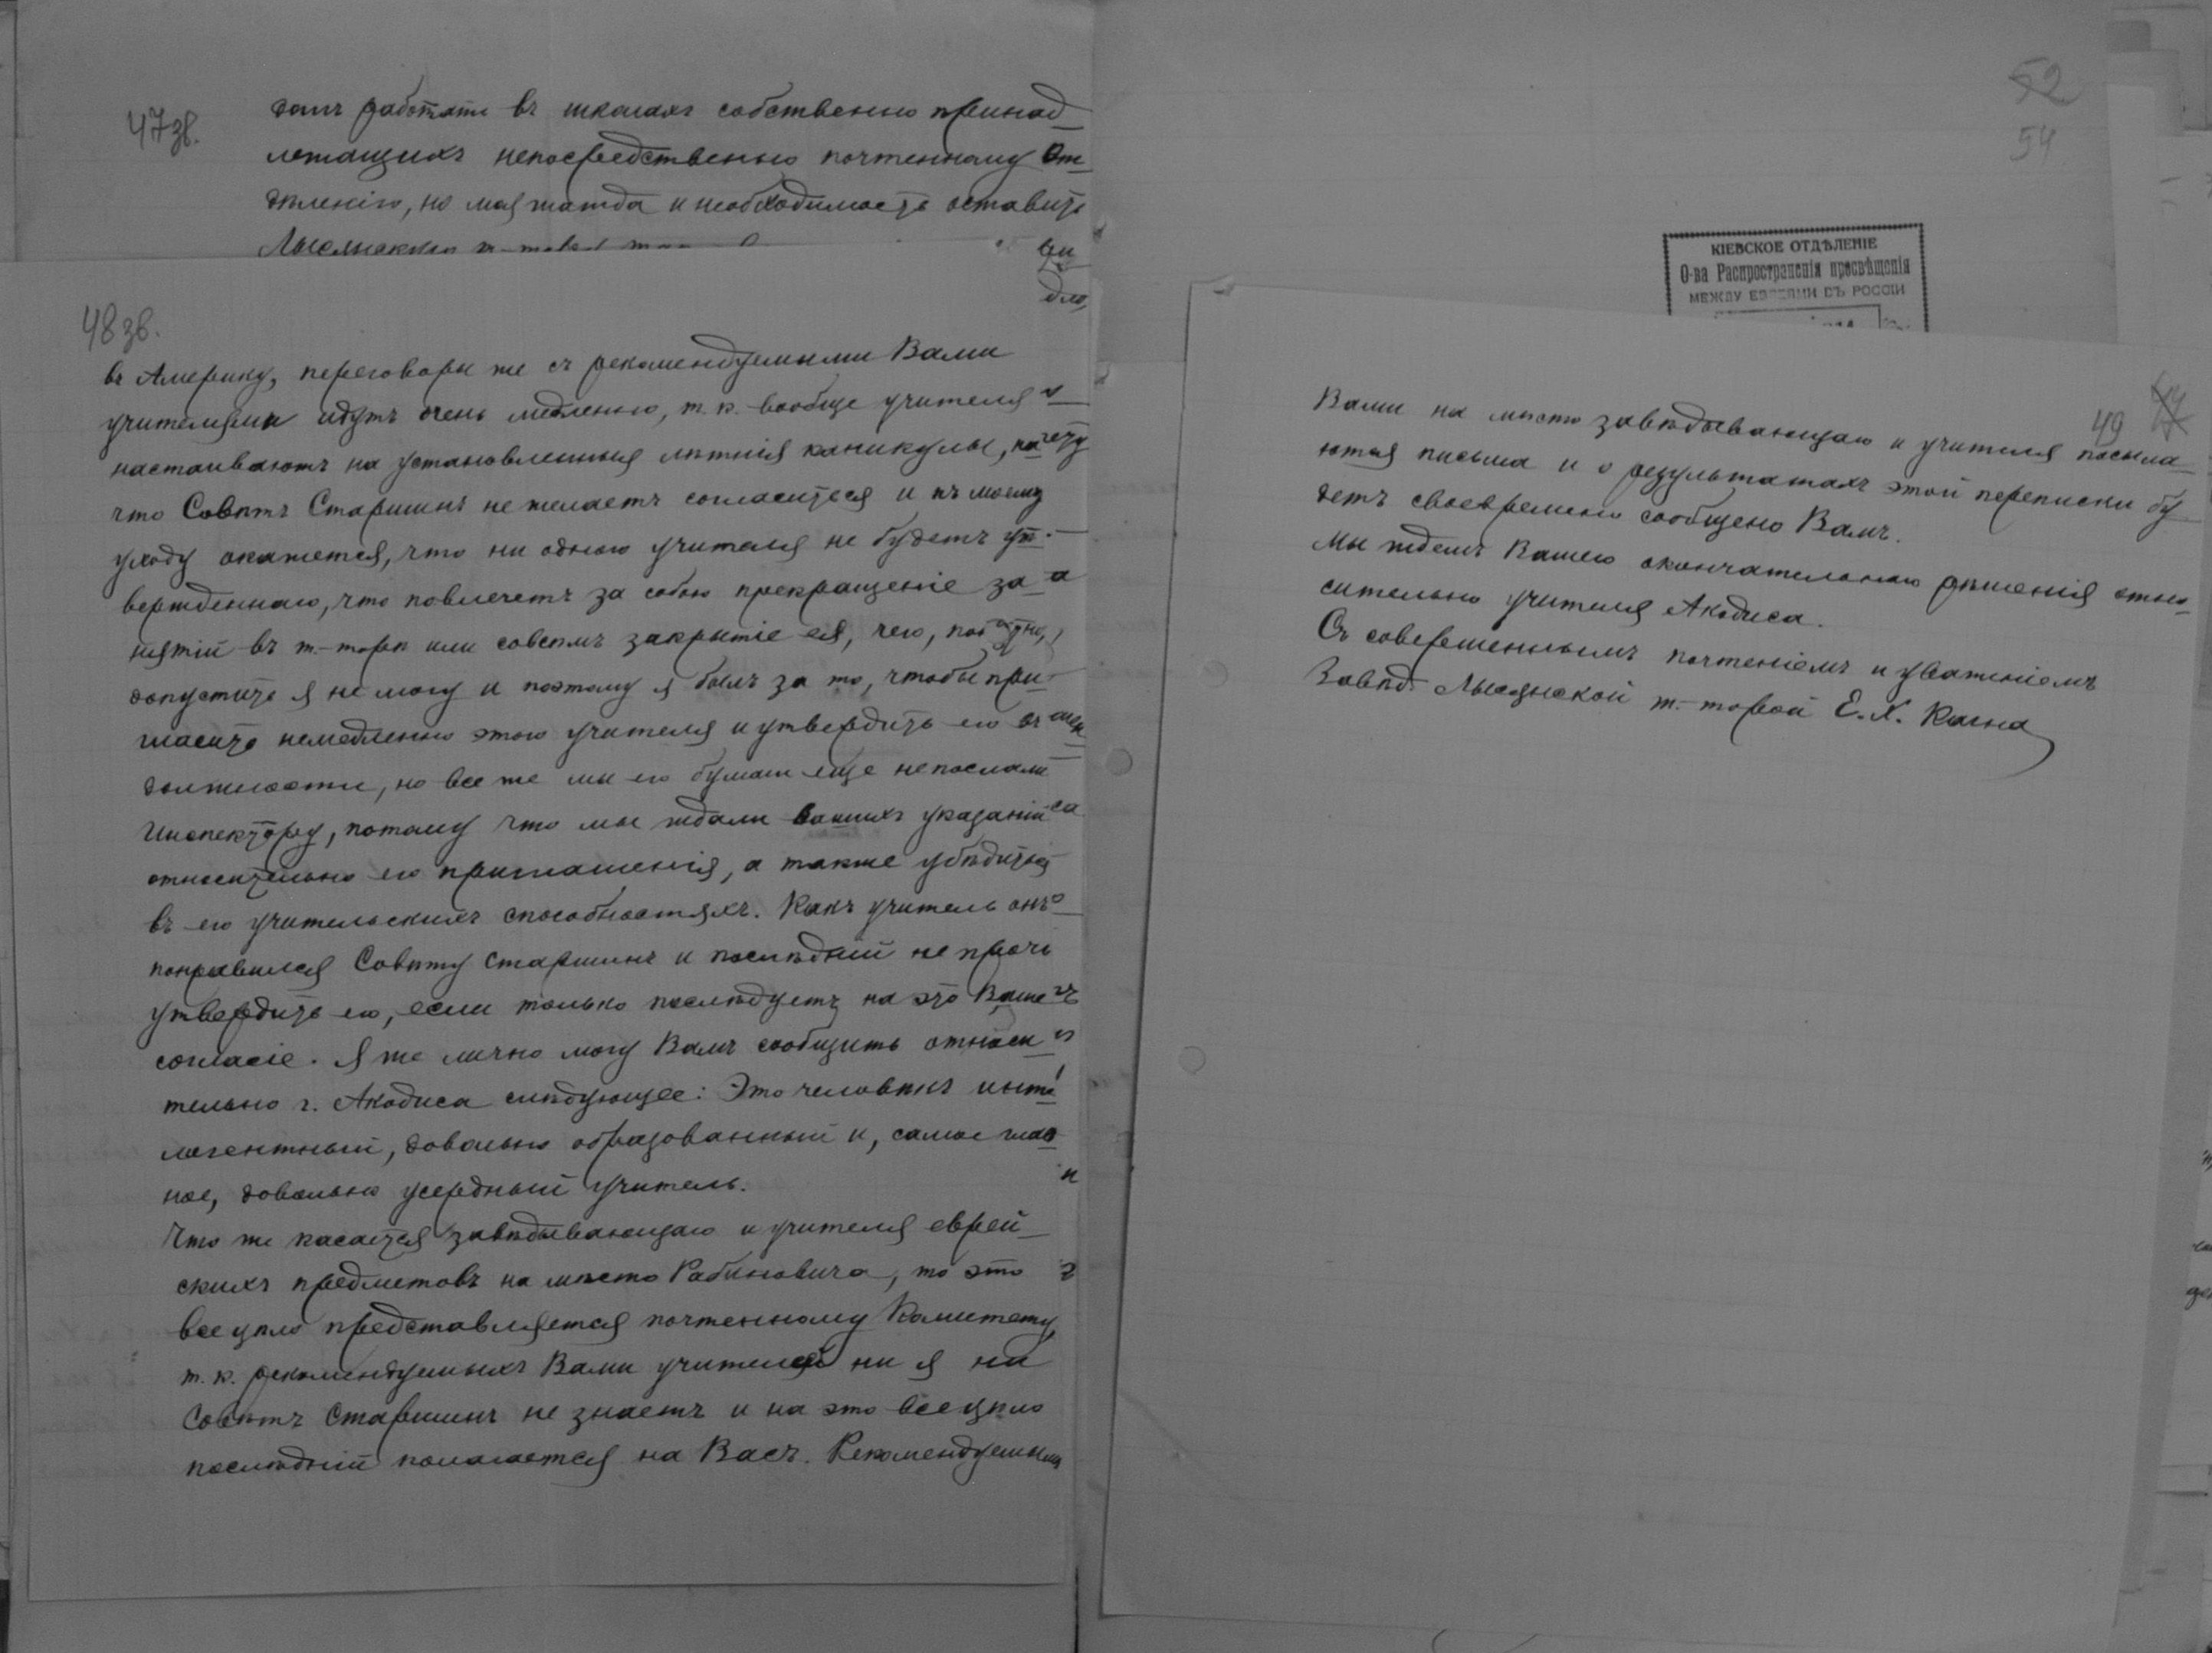 47 зв.
дамъ работати въ школахъ собственно принад-
лежащихъ непосредственно почтенному От-
дѣленію, но моя жажда и необходимость оставить
48 зв.
въ Америку, переговоры же съ рекомендуемыми Вами
учителями идутъ очень медленно, т. к. вообще учителя
настаиваютъ на установленныя лѣтнія каникулы, на
что Совѣтъ Старшинъ не желаетъ согласиться и къ моему
уходу окажется, что ни одного учителя не будетъ ут-
вержденнаго, что повлечетъ за собою прекращеніе за-
нятій въ т.-торѣ или совсѣмъ закрытіе ея, чего,
допустить я не могу и поэтому я былъ за то, чтобы при-
гласить немедленно этого учителя и утвердить его въ
должности, но все же мы его бумаги еще не послали
Инспектору, потому что мы ждали вашихъ указаній
относительно его приглашенія, а также убѣдиться
въ его учительскихъ способностяхъ. Какъ учитель онъ
понравился Совѣту Старшинъ и послѣдній не прочь
утвердить его, если только послѣдуетъ на это Ваше
согласіе. Я же лично могу Вамъ сообщить относи-
тельно г. Акодиса слѣдующее: Это человѣкъ инте-
легентный, довольно образованный и, самое глав-
ное, довольно усердный учитель.
Что же касается завѣдывающаго и учителя еврей-
скихъ предметовъ на мѣсто Рабиновича, то это
всецѣло представляется почтенному Комитету,
т. к. рекомендуемыхъ Вами учителей ни я ни
Совѣтъ Старшинъ не знаетъ и на это всецѣло
послѣдній полагается на Васъ. Рекомендуемымъ
52
54
КІЕВСКОЕ ОТДѢЛЕНІЕ
О-ва Распространенія просвѣщенія
МЕЖДУ ЕВРЕЯМИ ВЪ РОССІИ
49
Вами на мѣсто завѣдывающаго и учителя посыла-
ются письма и о результатахъ этой переписки бу-
детъ своевременно сообщено Вамъ.
Мы ждемъ Вашего окончательнаго рѣшенія отно-
сительно учителя Акодиса.
Съ совершеннымъ почтеніемъ и уваженіемъ
Завѣд. Лысянской т.-торой Е. Х. Кагна